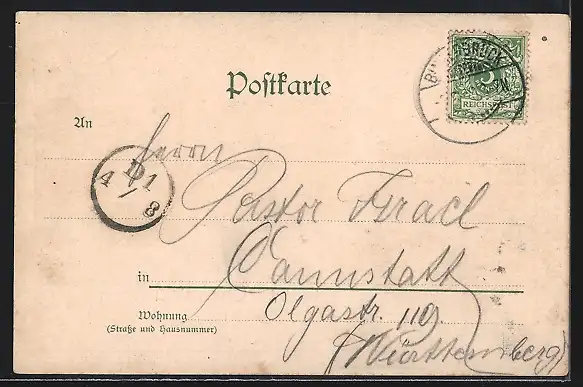 Postkarte
REICHSPOST
An
Herrn
D1
4/8
Pastor Israel
in Cannstatt
Wohnung Olgastr. 119
(Straße und Hausnummer)
(Württemberg)